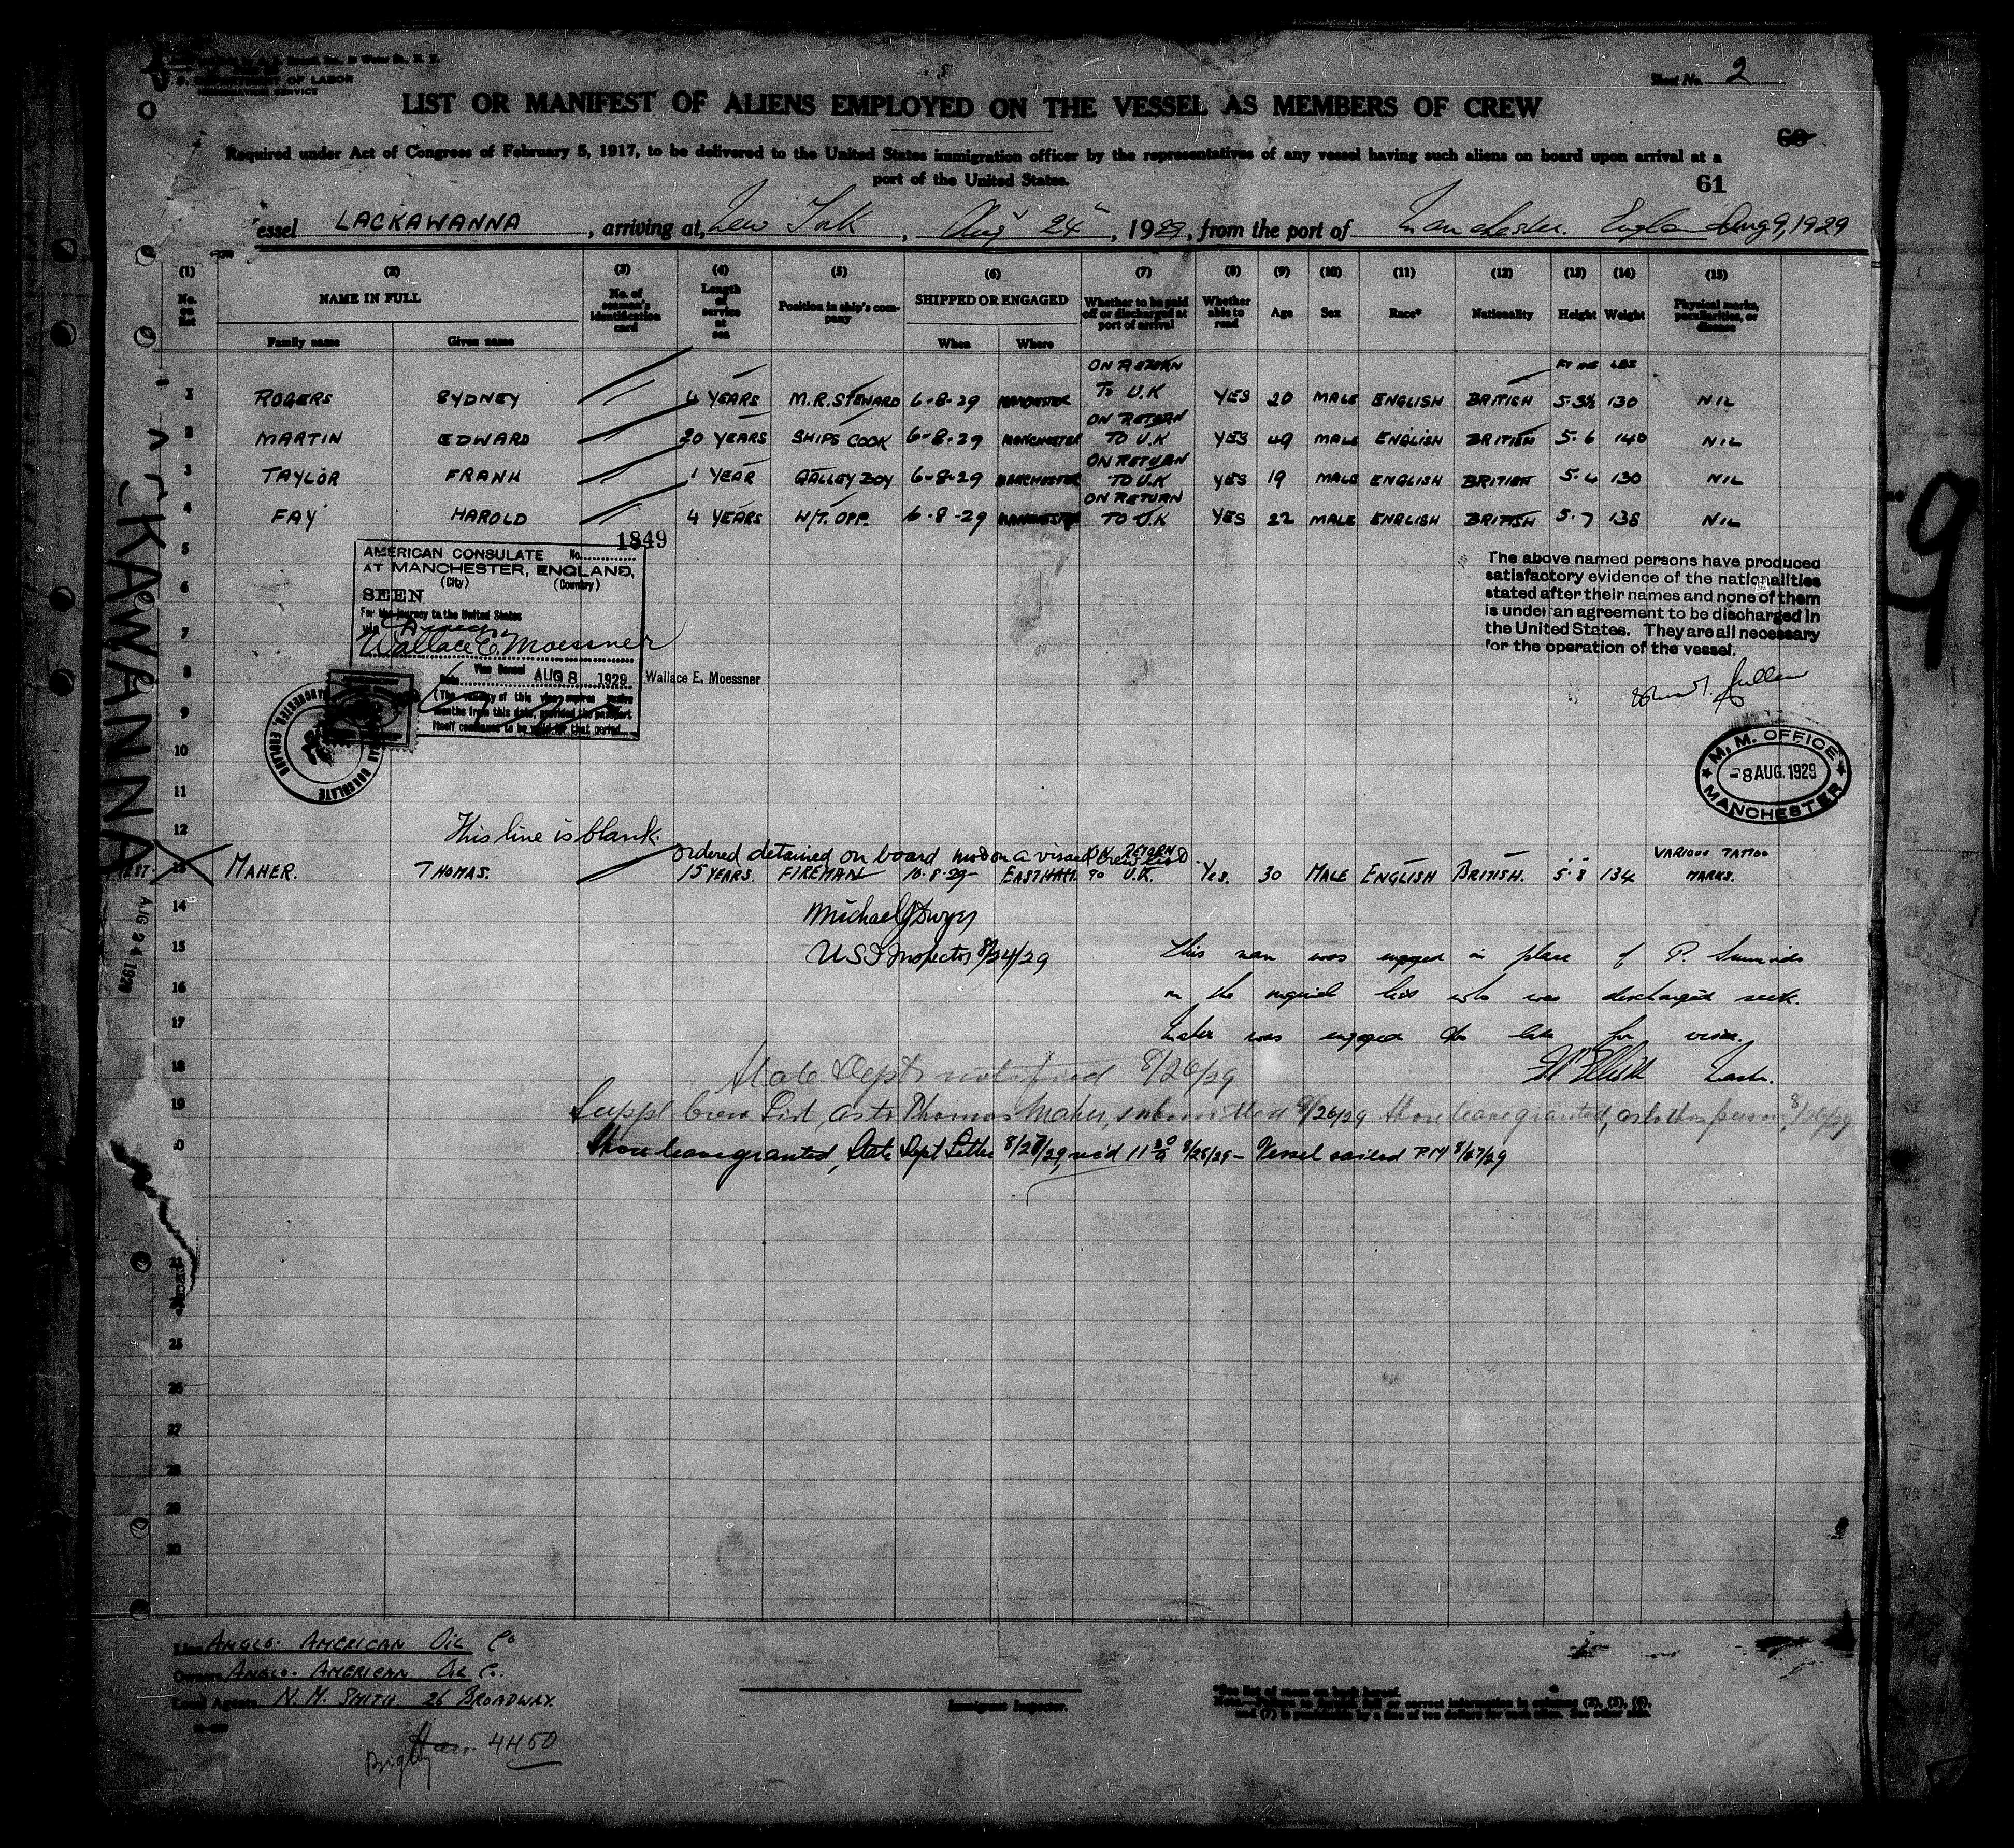 Sheet No. 2
U. S. DEPARTMENT OF LABOR
IMMIGRATION SERVICE
LIST OR MANIFEST OF ALIENS EMPLOYED ON THE VESSEL AS MEMBERS OF CREW
60
Required under Act of Congress of February 5, 1917, to be delivered to the United States immigration officer by the representatives of any vessel having such aliens on board upon arrival at a
port of the United States.
61
Vessel LACKAWANNA, arriving at, New York, Aug 24th, 1929, from the port of Manchester. England Aug 9, 1929
(1) (2) (3) (4) (5) (6) (7) (8) (9) (10) (11) (12) (13) (14) (15)
No. on list
NAME IN FULL
Family name Given name
No. of seaman's identification card
Length of service at sea
Position in ship's company
SHIPPED OR ENGAGED
When Where
Whether to be paid off or discharged at port of arrival
Whether able to read
Age Sex Race* Nationality Height Weight
Physical marks, peculiarities, or disease
FT INS LBS
1 ROGERS SYDNEY 4 YEARS M.R. STEWARD 6-8-29 MANCHESTER ON RETURN TO U.K YES 20 MALE ENGLISH BRITISH 5-3½ 130 NIL
2 MARTIN EDWARD 20 YEARS SHIPS COOK 6-8-29 MANCHESTER ON RETURN TO U.K YES 49 MALE ENGLISH BRITISH 5-6 140 NIL
3 TAYLOR FRANK 1 YEAR GALLEY BOY 6-8-29 MANCHESTER ON RETURN TO U.K YES 19 MALE ENGLISH BRITISH 5-4 130 NIL
4 FAY HAROLD 4 YEARS W/T. OPP. 6-8-29 MANCHESTER ON RETURN TO U.K YES 22 MALE ENGLISH BRITISH 5-7 138 NIL
5
6
7
8
9
10
11
12
1849
AMERICAN CONSULATE No.
AT MANCHESTER, ENGLAND,
(City) (Country)
SEEN
For the journey to the United States
via
Wallace E. Moessner
Vice Consul
Date AUG 8 1929
Wallace E. Moessner
(The validity of this visa expires twelve
months from this date, provided the passport
itself continues to be valid for that period.
AMERICAN CONSULATE
MANCHESTER, ENGLAND
The above named persons have produced
satisfactory evidence of the nationalities
stated after their names and none of them
is under an agreement to be discharged in
the United States. They are all necessary
for the operation of the vessel.
M. M. OFFICE
-8 AUG. 1929
MANCHESTER
This line is blank.
ordered detained on board not on a visaed Crew List
13 MAHER. THOMAS. 15 YEARS. FIREMAN 10-8-29- EASTHAM. ON RETURN TO U.K. Yes. 30 MALE ENGLISH BRITISH. 5-8 134 VARIOUS TATTOO MARKS.
14 Michael J Dwyer
15 U S I Inspector 8/24/29
This man was engaged in place of P.
16 on the original list who was discharged sick.
17 Maher was engaged too late for visa.
18 State Dept notified 8/26/29
19 Suppl Crew List, as to Thomas Maher, submitted 8/26/29 Shore leave granted, as to this person, 8/26/29
20 Shore leave granted, State Dept Letter 8/27/29, rec'd 11 30 a 8/28/29 - Vessel sailed PM 8/27/29
25
26
27
28
29
30
LACKAWANNA
AUG 24 1929
9
Line ANGLO-AMERICAN OIL Co
Owners ANGLO-AMERICAN OIL Co.
Local Agents N. M. SMITH. 26 BROADWAY.
4450
Immigrant Inspector.
*See list of races on back hereof.
Note.—Failure to furnish full or correct information in columns (2), (5), (6),
and (7) is punishable by a fine of ten dollars for each alien. See other side.